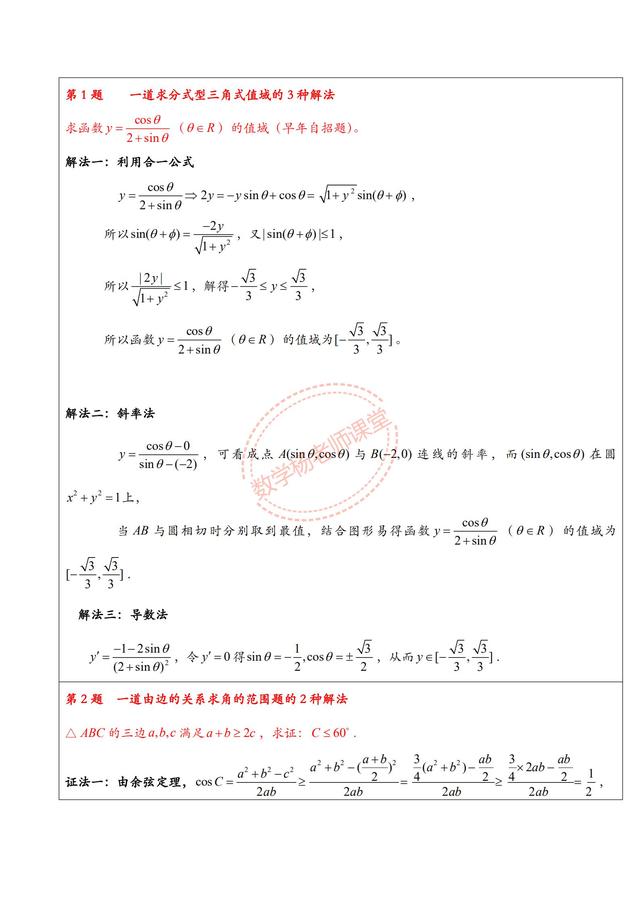 第1题 一道求分式型三角式值域的3种解法
求函数 y = cosθ/(2+sinθ)(θ∈R)的值域(早年自招题)。
解法一:利用合一公式
y = cosθ/(2+sinθ) ⇒ 2y = −y sinθ + cosθ = √(1+y²) sin(θ+ϕ),
所以 sin(θ+ϕ) = −2y/√(1+y²),又 |sin(θ+ϕ)| ≤ 1,
所以 |2y|/√(1+y²) ≤ 1,解得 −√3/3 ≤ y ≤ √3/3,
所以函数 y = cosθ/(2+sinθ)(θ∈R)的值域为[−√3/3, √3/3]。
解法二:斜率法
y = (cosθ−0)/(sinθ−(−2)),可看成点 A(sinθ,cosθ) 与 B(−2,0) 连线的斜率,而 (sinθ,cosθ) 在圆
x² + y² = 1上,
当 AB 与圆相切时分别取到最值,结合图形易得函数 y = cosθ/(2+sinθ)(θ∈R)的值域为
[−√3/3, √3/3].
解法三:导数法
y′ = (−1−2sinθ)/(2+sinθ)²,令 y′ = 0 得 sinθ = −1/2, cosθ = ±√3/2,从而 y∈[−√3/3, √3/3].
数学杨老师课堂
第2题 一道由边的关系求角的范围题的2种解法
△ABC 的三边 a,b,c 满足 a+b ≥ 2c,求证:C ≤ 60°.
证法一:由余弦定理,cosC = (a²+b²−c²)/2ab ≥ (a²+b²−((a+b)/2)²)/2ab = (3/4(a²+b²)−ab/2)/2ab ≥ (3/4×2ab−ab/2)/2ab = 1/2,